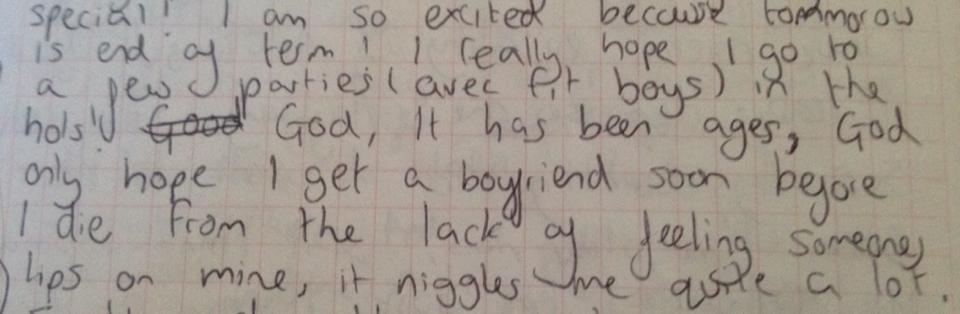 special! I am so excited because tommorow
is end of term! I really hope I go to
a few parties (avec fit boys) in the
hols! Good God, It has been ages, God
only hope I get a boyfriend soon before
I die from the lack of feeling someones
lips on mine, it niggles me quite a lot.